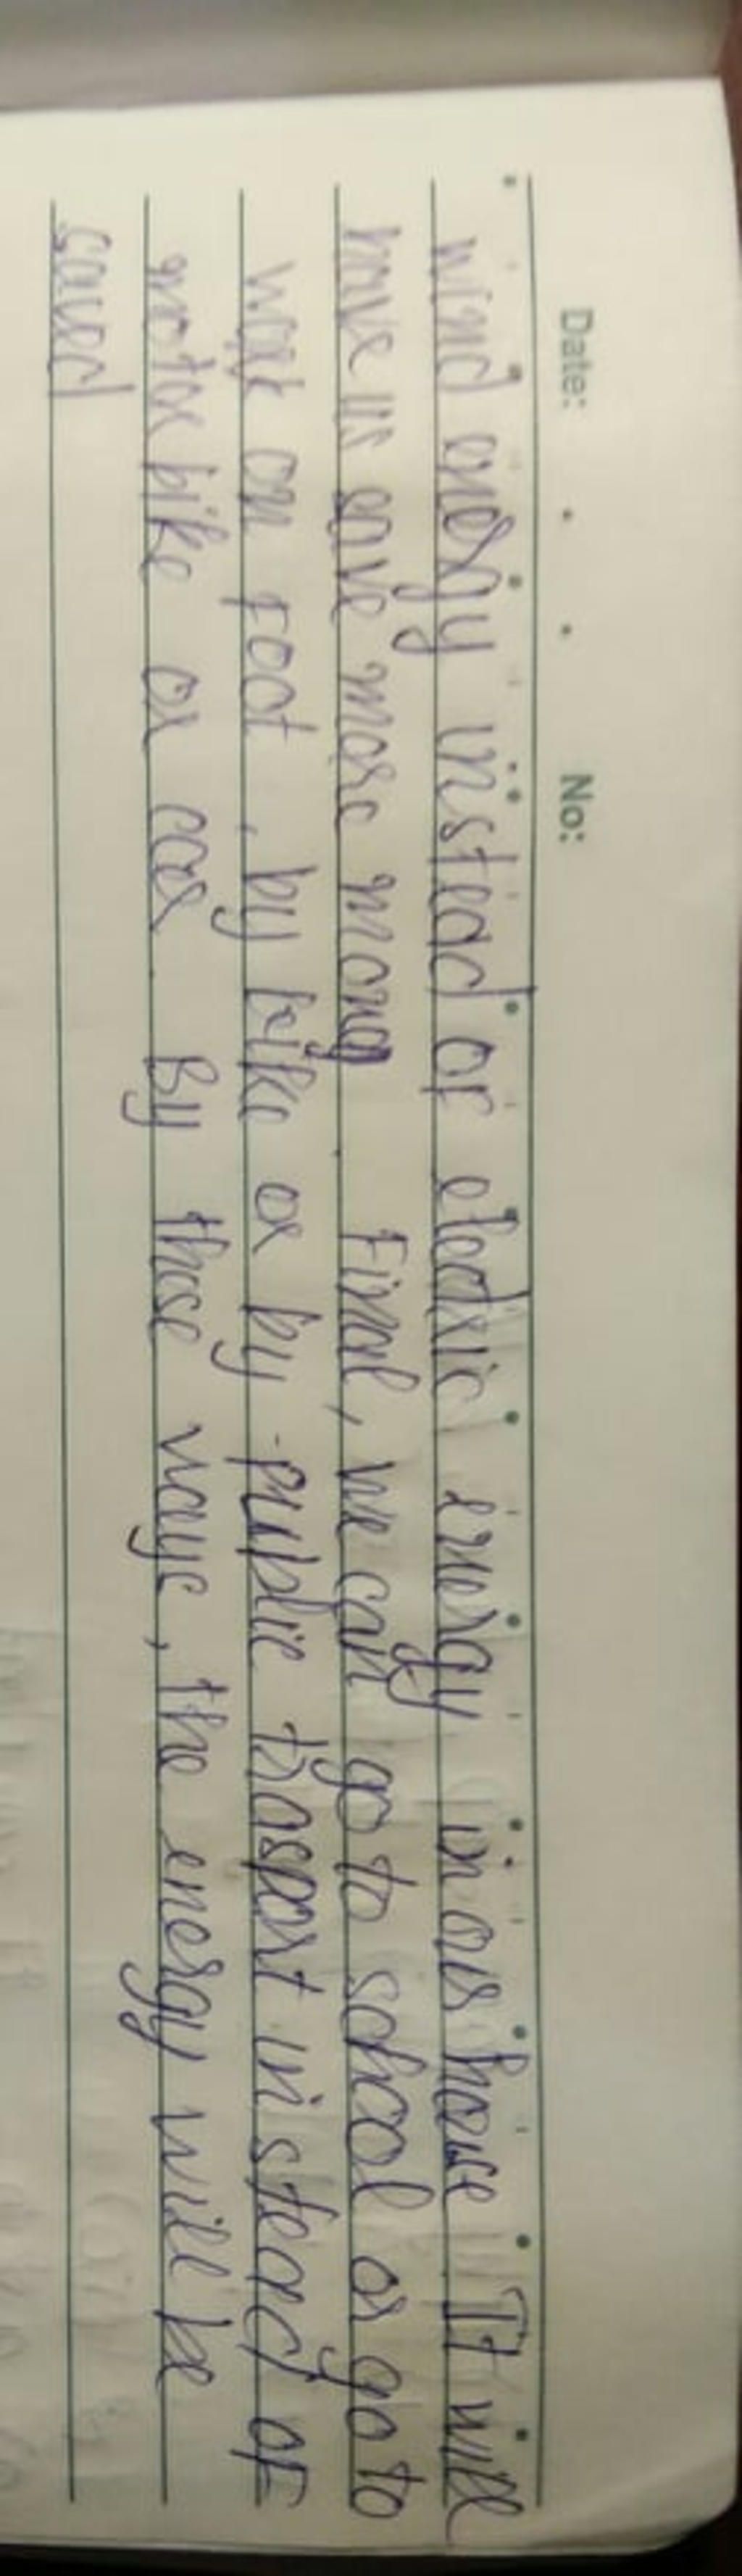 Date: No:
wind energy instead of electric energy in our house. It will
have us save more mony. Final, we can go to school or go to
work on foot, by bike or by public trasport instead of
motorbike or car. By these ways, the energy will be
saved